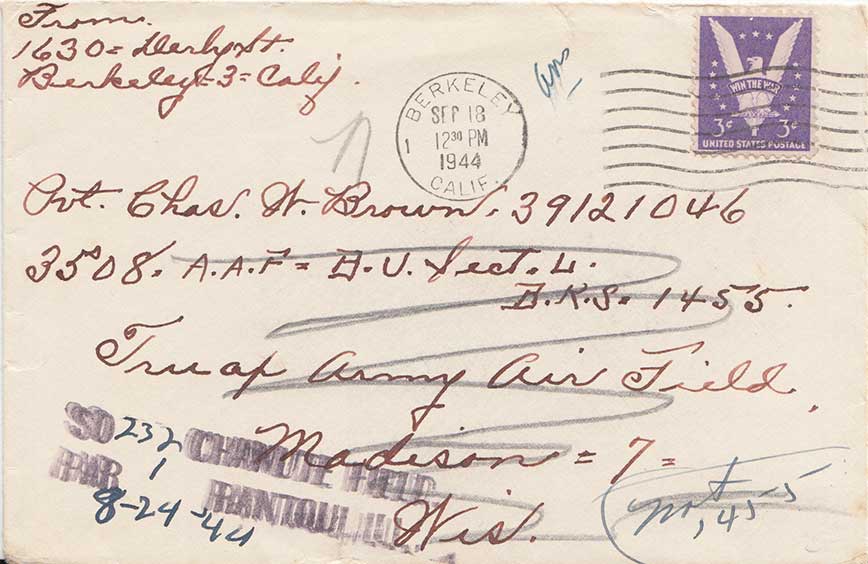 From.
1630 = Derby St.
Berkeley - 3 = Calif.
BERKELEY
SEP 18
12 30 PM
1944
CALIF.
1
WIN THE WAR
3¢ 3¢
UNITED STATES POSTAGE
Pvt. Chas. W. Brown. 39121046
3508. A.A.F = B.U. Sect. L.
B.K.S. 1455.
Truap Army Air Field,
Madison = 7 =
Wis.
SO 232 CHANUTE FIELD
PAR 1 RANTOUL ILL.
8-24-44
not
1455